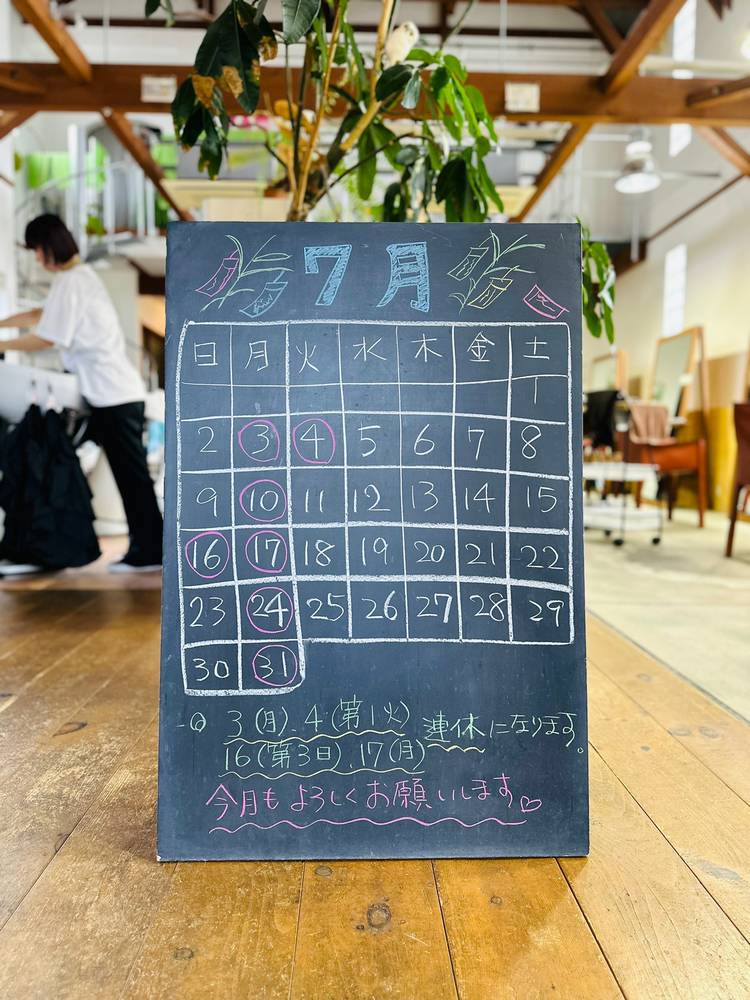 7月
日 月 火 水 木 金 土
1
2 3 4 5 6 7 8
9 10 11 12 13 14 15
16 17 18 19 20 21 22
23 24 25 26 27 28 29
30 31
3(月)、4(第1火) 連休になります。
16(第3日)、17(月)
今月もよろしくお願いします♡